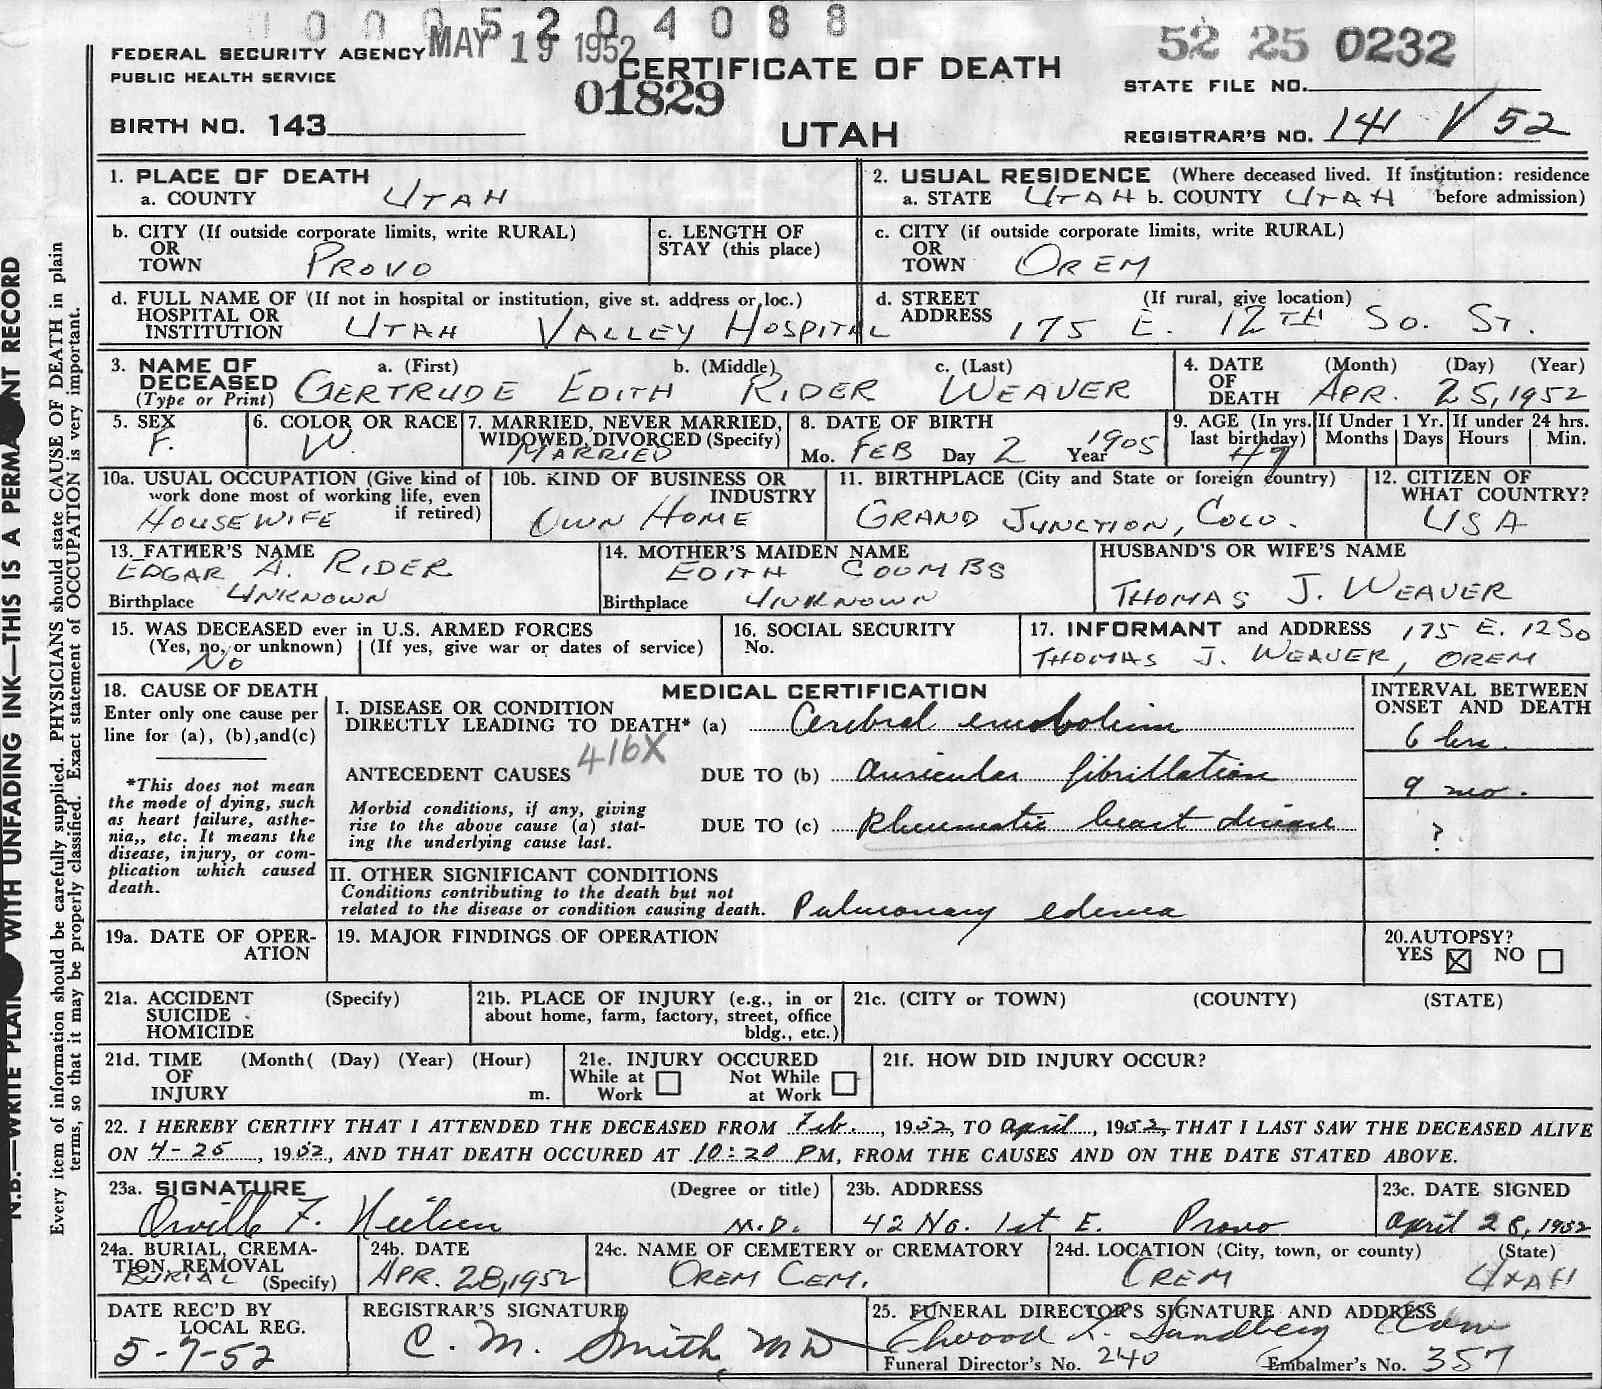 00052 04088
MAY 19 1952
52 25 0232
FEDERAL SECURITY AGENCY
PUBLIC HEALTH SERVICE
CERTIFICATE OF DEATH
01829
STATE FILE NO.
BIRTH NO. 143
UTAH
REGISTRAR'S NO. 141 V 52
1. PLACE OF DEATH
a. COUNTY UTAH
2. USUAL RESIDENCE (Where deceased lived. If institution: residence
a. STATE UTAH b. COUNTY UTAH before admission)
b. CITY (If outside corporate limits, write RURAL)
OR
TOWN PROVO
c. LENGTH OF
STAY (this place)
c. CITY (if outside corporate limits, write RURAL)
OR
TOWN OREM
d. FULL NAME OF (If not in hospital or institution, give st. address or loc.)
HOSPITAL OR
INSTITUTION UTAH VALLEY HOSPITAL
d. STREET (If rural, give location)
ADDRESS 175 E. 12TH SO. ST.
3. NAME OF a. (First) b. (Middle) c. (Last)
DECEASED GERTRUDE EDITH RIDER WEAVER
(Type or Print)
4. DATE (Month) (Day) (Year)
OF
DEATH APR. 25, 1952
5. SEX
F.
6. COLOR OR RACE
W.
7. MARRIED, NEVER MARRIED,
WIDOWED, DIVORCED (Specify)
MARRIED
8. DATE OF BIRTH
Mo. FEB Day 2 Year 1905
9. AGE (In yrs.
last birthday)
47
If Under 1 Yr.
Months Days
If under 24 hrs.
Hours Min.
10a. USUAL OCCUPATION (Give kind of
work done most of working life, even
HOUSEWIFE if retired)
10b. KIND OF BUSINESS OR
INDUSTRY
OWN HOME
11. BIRTHPLACE (City and State or foreign country)
GRAND JUNCTION, COLO.
12. CITIZEN OF
WHAT COUNTRY?
USA
13. FATHER'S NAME
EDGAR A. RIDER
Birthplace UNKNOWN
14. MOTHER'S MAIDEN NAME
EDITH COOMBS
Birthplace UNKNOWN
HUSBAND'S OR WIFE'S NAME
THOMAS J. WEAVER
15. WAS DECEASED ever in U.S. ARMED FORCES
(Yes, no, or unknown) (If yes, give war or dates of service)
NO
16. SOCIAL SECURITY
No.
17. INFORMANT and ADDRESS 175 E. 12 SO
THOMAS J. WEAVER, OREM
18. CAUSE OF DEATH
Enter only one cause per
line for (a), (b),and(c)
*This does not mean
the mode of dying, such
as heart failure, asthe-
nia,, etc. It means the
disease, injury, or com-
plication which caused
death.
MEDICAL CERTIFICATION
I. DISEASE OR CONDITION
DIRECTLY LEADING TO DEATH* (a) Cerebral embolism
416X
ANTECEDENT CAUSES DUE TO (b) auricular fibrillation
Morbid conditions, if any, giving
rise to the above cause (a) stat-
ing the underlying cause last.
DUE TO (c) Rheumatic heart disease
INTERVAL BETWEEN
ONSET AND DEATH
6 hrs.
9 mo.
?
II. OTHER SIGNIFICANT CONDITIONS
Conditions contributing to the death but not
related to the disease or condition causing death. Pulmonary edema
19a. DATE OF OPER-
ATION
19. MAJOR FINDINGS OF OPERATION
20.AUTOPSY?
YES ☒ NO ☐
21a. ACCIDENT (Specify)
SUICIDE
HOMICIDE
21b. PLACE OF INJURY (e.g., in or
about home, farm, factory, street, office
bldg., etc.)
21c. (CITY or TOWN) (COUNTY) (STATE)
21d. TIME (Month( (Day) (Year) (Hour)
OF
INJURY m.
21e. INJURY OCCURED
While at ☐ Not While ☐
Work at Work
21f. HOW DID INJURY OCCUR?
22. I HEREBY CERTIFY THAT I ATTENDED THE DECEASED FROM Feb., 1952, TO April, 1952, THAT I LAST SAW THE DECEASED ALIVE
ON 4-25, 1952, AND THAT DEATH OCCURED AT 10:20 PM, FROM THE CAUSES AND ON THE DATE STATED ABOVE.
23a. SIGNATURE (Degree or title)
Orville F. Nielsen M.D.
23b. ADDRESS
42 No. 1st E. Provo
23c. DATE SIGNED
April 28, 1952
24a. BURIAL, CREMA-
TION, REMOVAL
BURIAL (Specify)
24b. DATE
APR. 28, 1952
24c. NAME OF CEMETERY or CREMATORY
OREM CEM.
24d. LOCATION (City, town, or county) (State)
OREM UTAH
DATE REC'D BY
LOCAL REG.
5-7-52
REGISTRAR'S SIGNATURE
C. M. Smith, MD
25. FUNERAL DIRECTOR'S SIGNATURE AND ADDRESS
Elwood L. Sundberg
Funeral Director's No. 240 Embalmer's No. 357
N.B.—WRITE PLAIN WITH UNFADING INK—THIS IS A PERMA NT RECORD
Every item of information should be carefully supplied. PHYSICIANS should state CAUSE OF DEATH in plain
terms, so that it may be properly classified. Exact statement of OCCUPATION is very important.